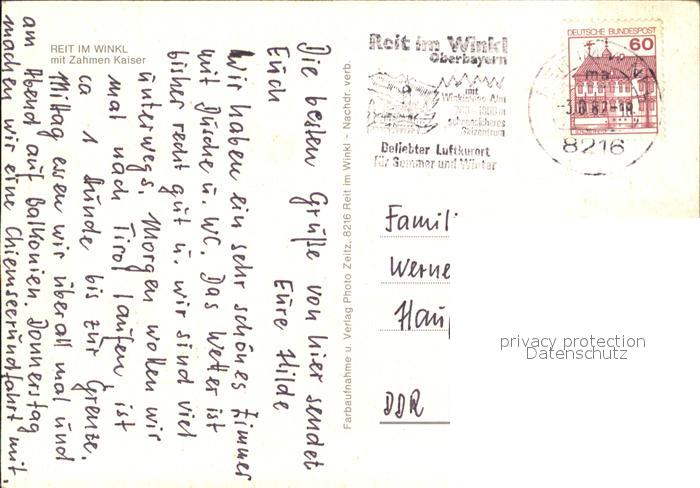 REIT IM WINKL
mit Zahmen Kaiser
Die besten Grüße von hier sendet
Euch Eure Hilde
Wir haben ein sehr schönes Zimmer
mit Dusche u. WC. Das Wetter ist
bisher recht gut u. wir sind viel
unterwegs. Morgen wollen wir
mal nach Tirol laufen, ist
ca 1 Stunde bis zur Grenze.
Mittag essen wir überall mal und
am Abend auf Balkonien. Donnerstag
machen wir eine Chiemseerundfahrt mit.
Farbaufnahme u. Verlag Photo Zeitz, 8216 Reit im Winkl - Nachdr. verb.
Reit im Winkl
Oberbayern
mit
Winklmoos Alm
schneesicheres
Skizentrum
Beliebter Luftkurort
für Sommer und Winter
DEUTSCHE BUNDESPOST
60
8216
Famil
Werne
Hau
DDR
privacy protection
Datenschutz